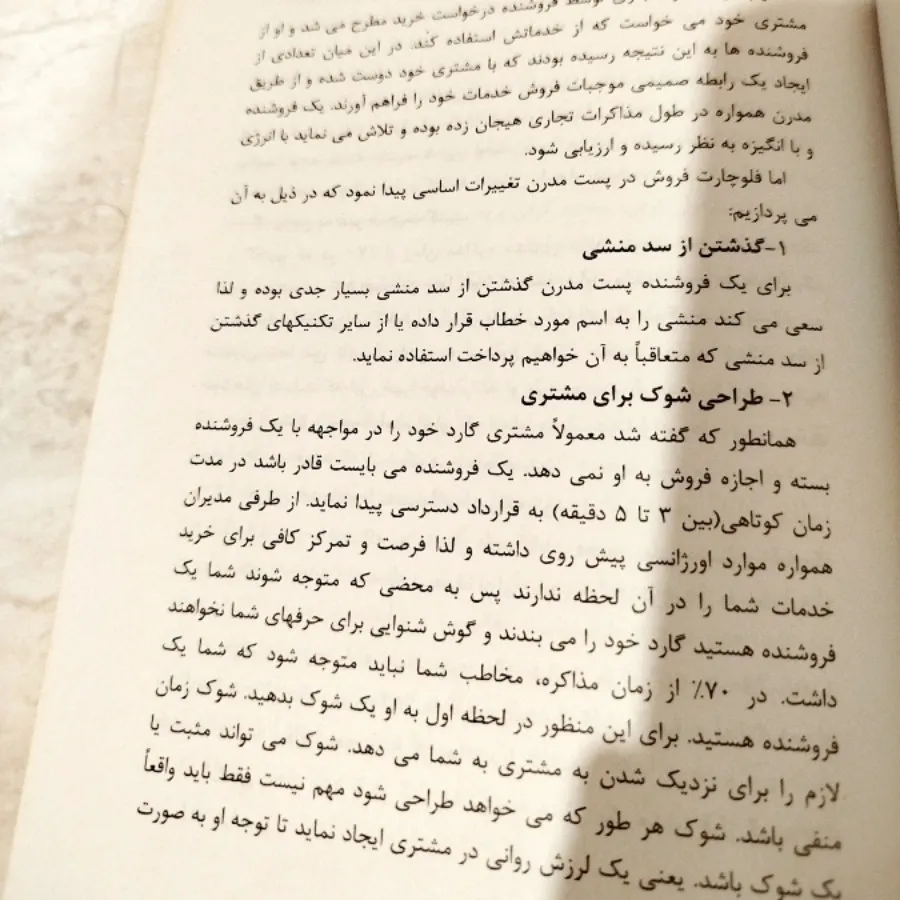 توسط فروشنده درخواست خرید مطرح می شد و او از
مشتری خود می خواست که از خدماتش استفاده کند. در این میان تعدادی از
فروشنده ها به این نتیجه رسیده بودند که با مشتری خود دوست شده و از طریق
ایجاد یک رابطه صمیمی موجبات فروش خدمات خود را فراهم آورند. یک فروشنده
مدرن همواره در طول مذاکرات تجاری هیجان زده بوده و تلاش می نماید با انرژی
و با انگیزه به نظر رسیده و ارزیابی شود.
اما فلوچارت فروش در پست مدرن تغییرات اساسی پیدا نمود که در ذیل به آن
می پردازیم:
۱-گذشتن از سد منشی
برای یک فروشنده پست مدرن گذشتن از سد منشی بسیار جدی بوده و لذا
سعی می کند منشی را به اسم مورد خطاب قرار داده یا از سایر تکنیکهای گذشتن
از سد منشی که متعاقباً به آن خواهیم پرداخت استفاده نماید.
۲- طراحی شوک برای مشتری
همانطور که گفته شد معمولاً مشتری گارد خود را در مواجهه با یک فروشنده
بسته و اجازه فروش به او نمی دهد. یک فروشنده می بایست قادر باشد در مدت
زمان کوتاهی(بین ۳ تا ۵ دقیقه) به قرارداد دسترسی پیدا نماید. از طرفی مدیران
همواره موارد اورژانسی پیش روی داشته و لذا فرصت و تمرکز کافی برای خرید
خدمات شما را در آن لحظه ندارند پس به محضی که متوجه شوند شما یک
فروشنده هستید گارد خود را می بندند و گوش شنوایی برای حرفهای شما نخواهند
داشت. در ۷۰٪ از زمان مذاکره، مخاطب شما نباید متوجه شود که شما یک
فروشنده هستید. برای این منظور در لحظه اول به او یک شوک بدهید. شوک زمان
لازم را برای نزدیک شدن به مشتری به شما می دهد. شوک می تواند مثبت یا
منفی باشد. شوک هر طور که می خواهد طراحی شود مهم نیست فقط باید واقعاً
یک شوک باشد. یعنی یک لرزش روانی در مشتری ایجاد نماید تا توجه او به صورت